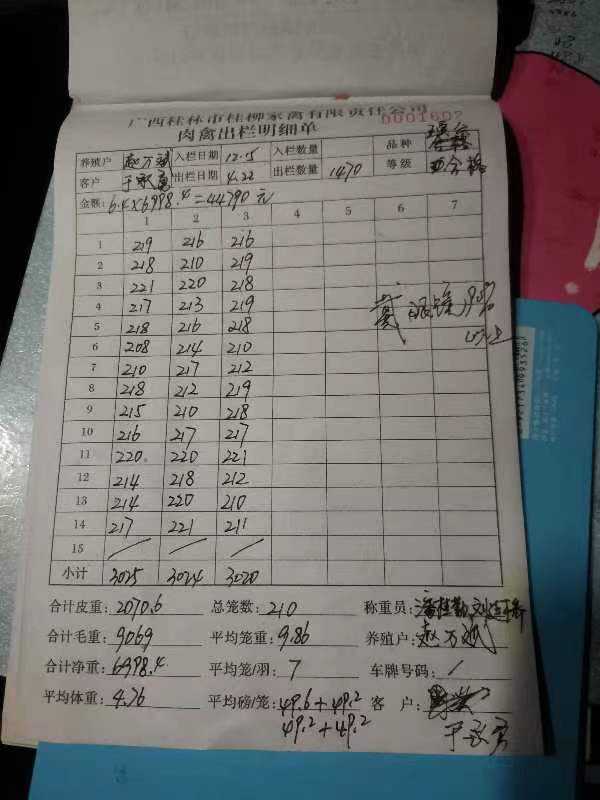 广西桂林市桂柳家禽有限责任公司
0001607
肉禽出栏明细单
养殖户 赵万斌 入栏日期 12.5 入栏数量 品种
客户 于永勇 出栏日期 4.22 出栏数量 1470 等级 合格
金额: 6.4×6998.4=44790元
1 2 3 4 5 6 7
1 219 216 216
2 218 210 219
3 221 220 218
4 217 213 219
5 218 216 218
6 208 214 210
7 210 217 212
8 218 212 219
9 215 210 218
10 216 217 217
11 220 220 221
12 214 218 212
13 214 220 210
14 217 221 211
15 / / /
小计 3025 3024 3020
合计皮重: 2070.6 总笼数: 210 称重员: 潘桂勤
合计毛重: 9069 平均笼重: 9.86 养殖户: 赵万斌
合计净重: 6998.4 平均笼/羽: 7 车牌号码: /
平均体重: 4.76 平均磅/笼: 49.6+49.2 客 户:
49.2+49.2 于永勇